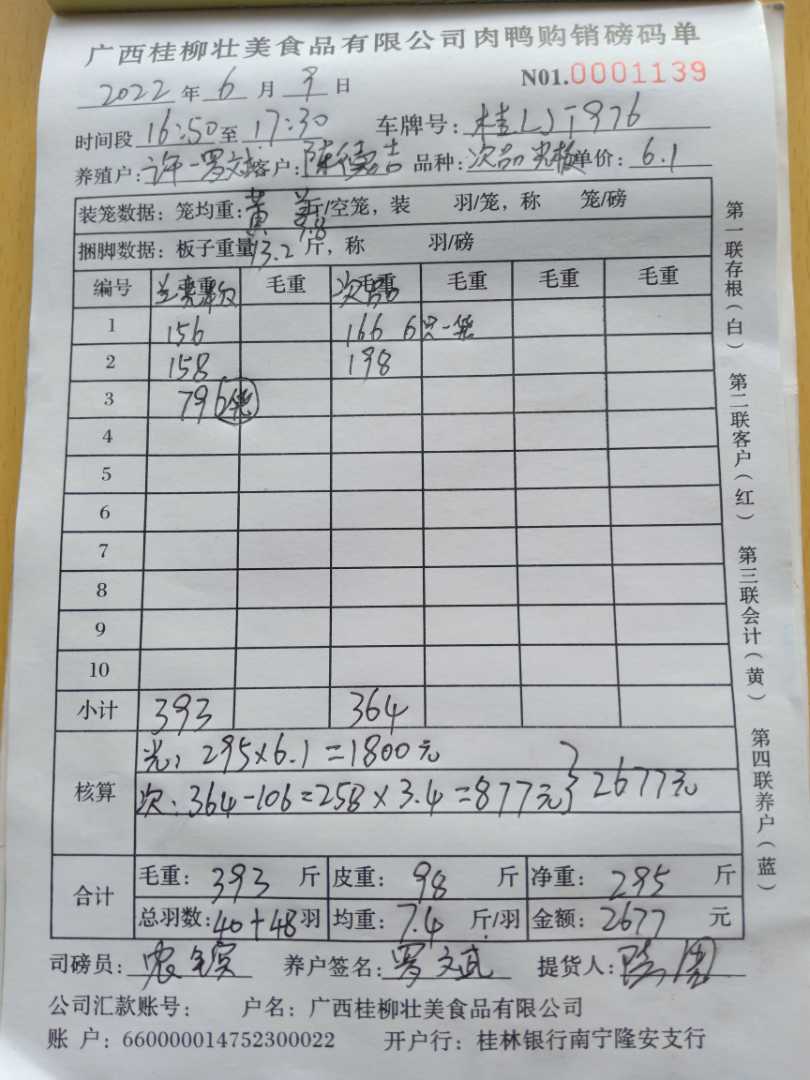 广西桂柳壮美食品有限公司肉鸭购销磅码单
2022年6月9日 N01.0001139
时间段16:50至17:30 车牌号:桂LJT976
养殖户:许一罗文斌客户: 品种:次品光板单价:6.1
装笼数据:笼均重:黄 9.8斤/空笼,装 羽/笼,称 笼/磅
捆脚数据:板子重量13.2斤,称 羽/磅
编号 毛重 毛重 次品毛重 毛重 毛重 毛重
1 156 166 6只一笼
2 158 198
3 79 6笼
4
5
6
7
8
9
10
小计 393 364
核算 光:295×6.1=1800元
次:364-106=258×3.4=877元}2677元
合计 毛重:393斤 皮重:98斤 净重:295斤
总羽数:40+48羽 均重:7.4斤/羽 金额:2677元
司磅员: 养户签名:罗文斌 提货人:
公司汇款账号: 户名:广西桂柳壮美食品有限公司
账户:660000014752300022 开户行:桂林银行南宁隆安支行
第一联存根(白) 第二联客户(红) 第三联会计(黄) 第四联养户(蓝)